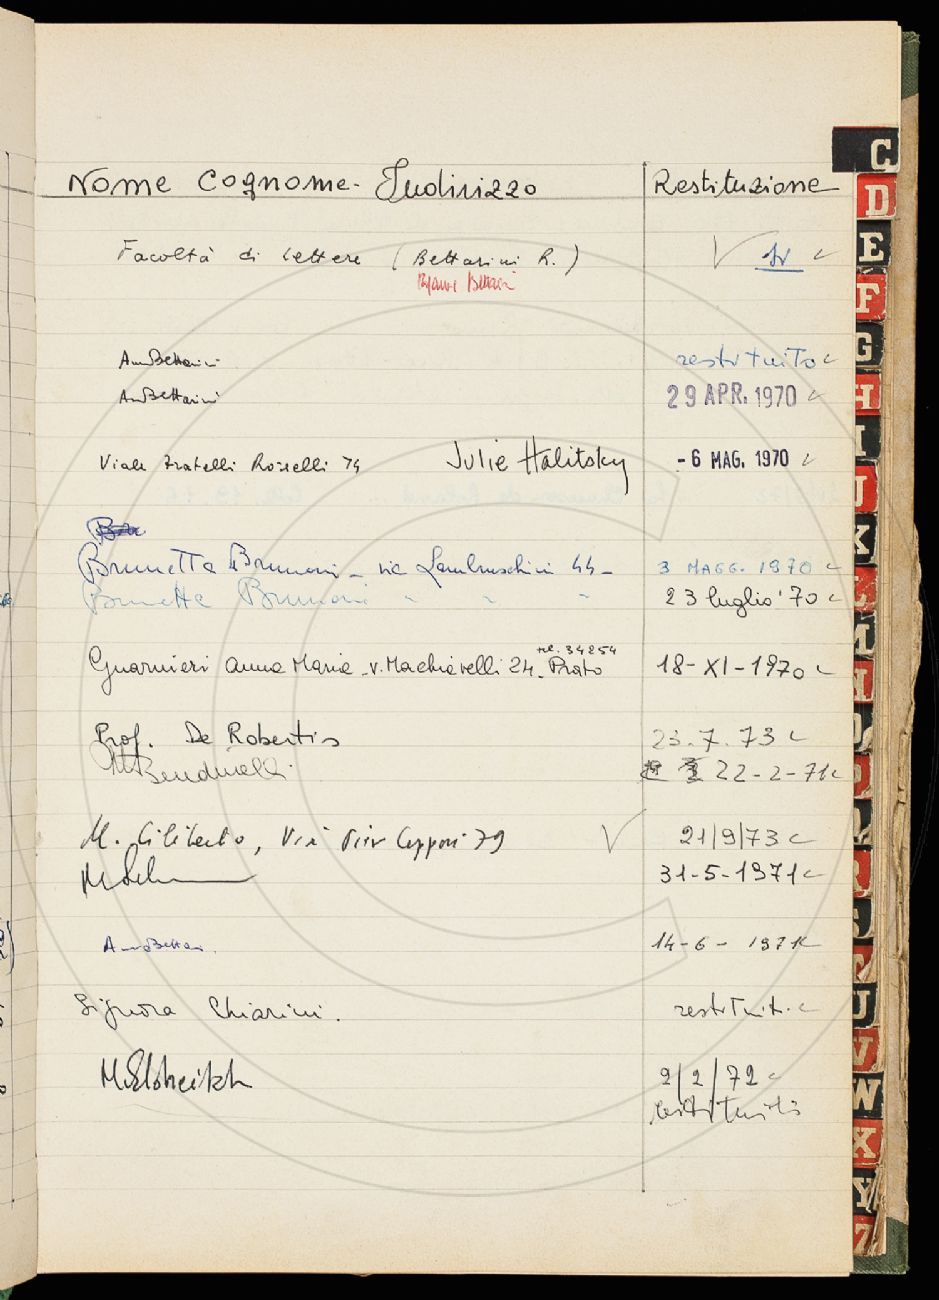 Nome Cognome - Indirizzo Restituzione
Facoltà di Lettere (Bettarini R.)
Bettarini
restituito
29 APR. 1970
Viale Fratelli Rosselli 74 Julie Halitsky - 6 MAG. 1970
Brunetta Brunoni - via Lambruschini 44 - 3 MAGG. 1970
Brunetta Brunoni " " " 23 luglio '70
tel. 34254
Guarnieri Anna Maria - v. Machiavelli 24 - Prato 18-XI-1970
Prof. De Robertis 23.7.73
22-2-71
M. Ciliberto, Via Pier Capponi 79 21/9/73
31-5-1971
14-6-1971
Signora Chiarini. restituit.
M. Elsheikh 2/2/72
restituito
C
D
E
F
G
H
I
J
K
L
M
N
O
P
R
T
U
V
W
X
Y
Z